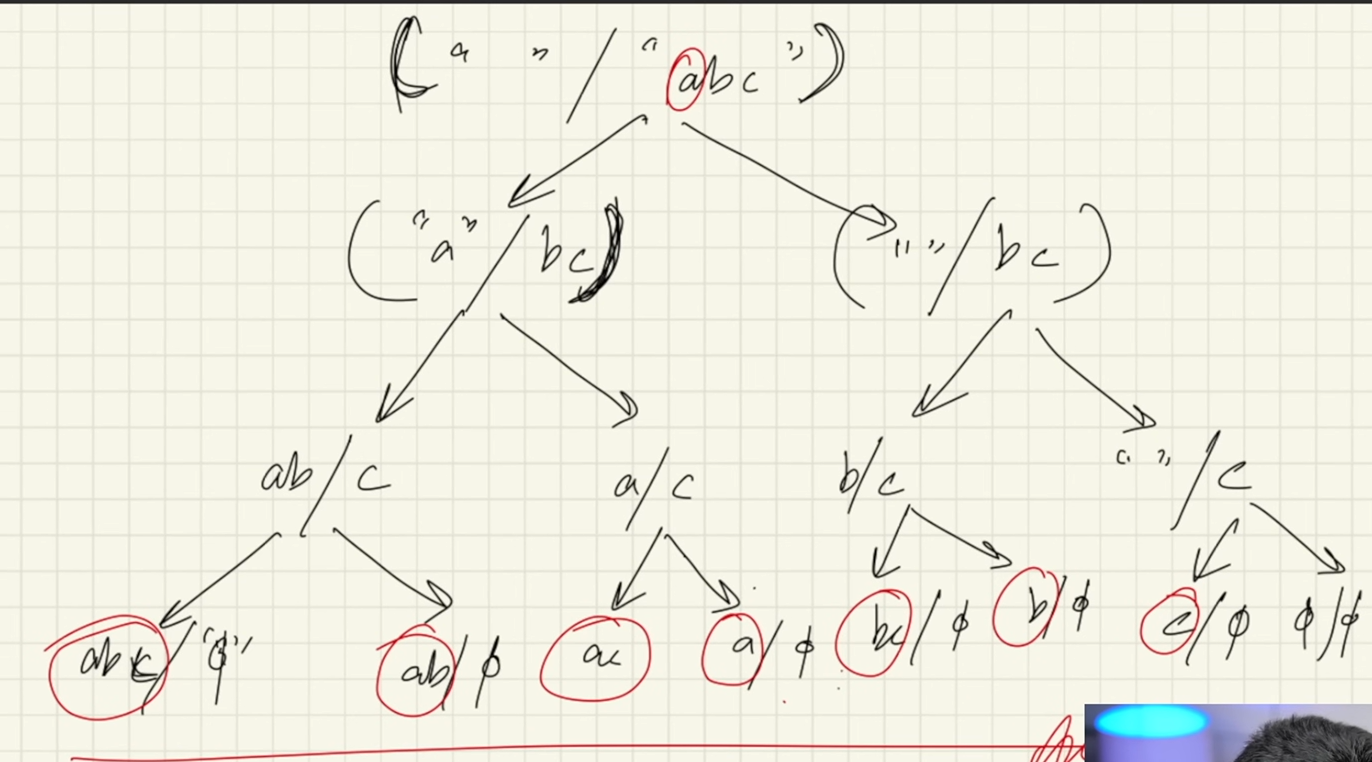 (" " / "abc")
("a" / bc) ("" / bc)
ab/c a/c b/c " "/c
abc/"ϕ" ab/ϕ ac a/ϕ bc/ϕ b/ϕ c/ϕ ϕ//ϕ